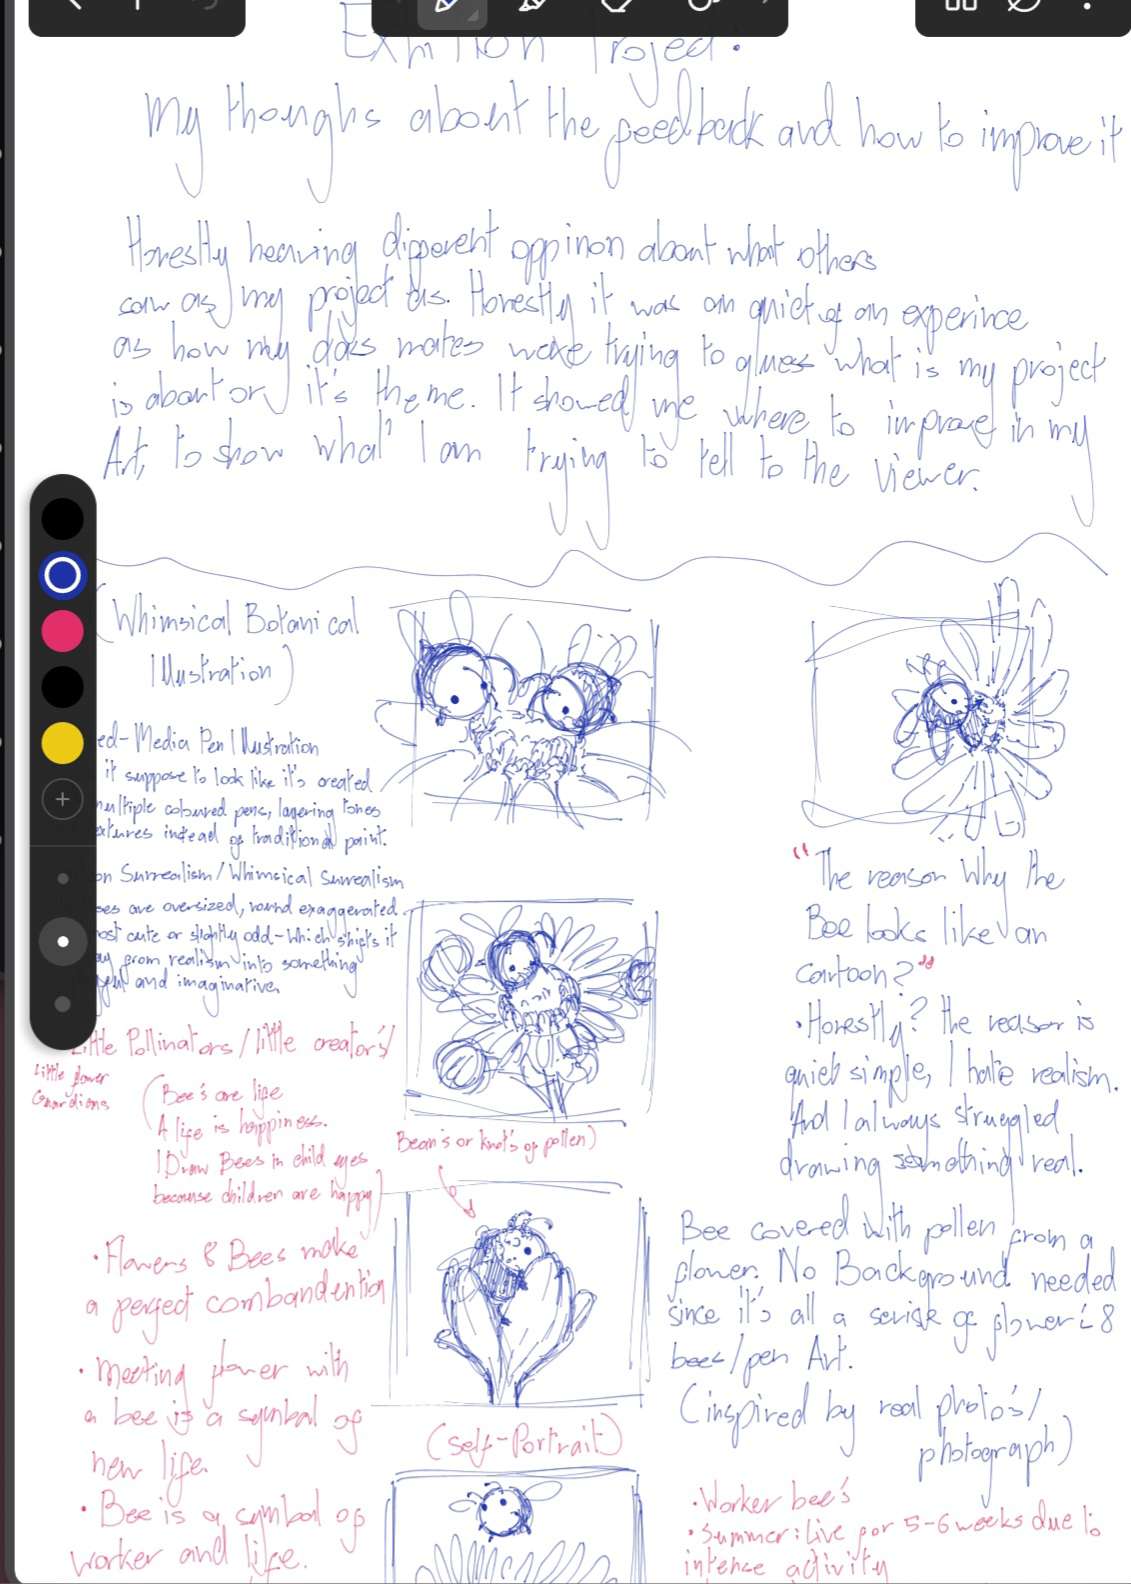 Project:
My thoughs about the feedback and how to improve it
Honestly hearing different oppinon about what others
saw as my project as. Honestly it was an quiet of an experince
as how my class mates were trying to gluess what is my project
is about or it's theme. It showed me where to improve in my
Art, to show what I am trying to tell to the viewer.
(Whimsical Botanical
Illustration)
ed-Media Pen Illustration
it suppose to look like it's created
multiple coloured pens, layering tones
extures instead of traditional paint.
on Surrealism/Whimsical Surrealism
ees are oversized, round exaggerated
ost cute or slightly odd-which shifts it
ay from realism into something
and imaginative.
Little Pollinators/little creators/
Little flower
Guardians
(Bee's are life
A life is happiness.
I Draw Bees in child eyes
becouse children are happy)
• Flowers & Bees make
a perfect combandention
• Meeting flower with
a bee is a symbol of
new life.
• Bee is a symbol of
worker and life.
Bean's or knot's of pollen)
(self-Portrait)
"The reason Why the
Bee looks like an
cartoon?"
• Honestly? the reason is
quiet simple, I hate realism.
And I always struggled
drawing something real.
Bee covered with pollen from a
flower. No Background needed
since it's all a serise of flower's &
bees/pen Art.
(inspired by real photo's/
photograph)
• Worker bee's
• Summer: Live for 5-6 weeks due to
intense activity